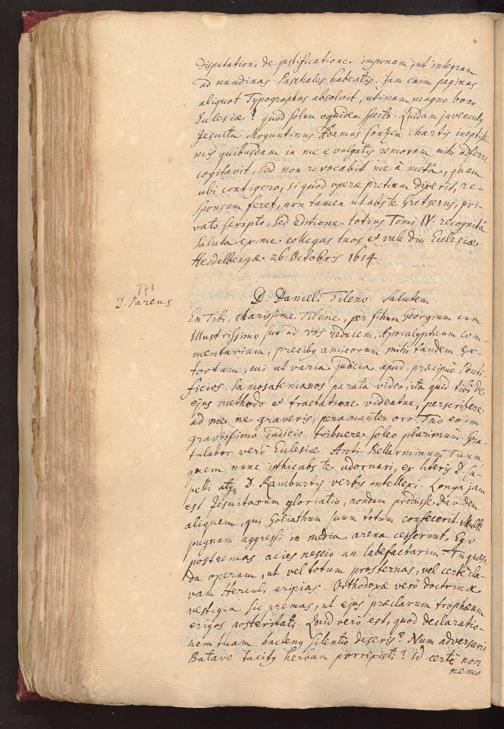 disputationi de justificatione imponam, ut integram
ad nundinas Paschales habeatis. Jam enim paginas
aliquot Typographus absolvit, utinam magno bono
Ecclesiæ! quod solum equidem specto. Quidam juvenculus
Jesuita Moguntinus chartis ineptissi-
mis quibusdam in me evulgatis remoram mihi adferre
cogitavit, sed non revocabit me à meta, quam
ubi contigero, si quod operæ pretium dixerit, re-
sponsum feret, non tamen ut abs te Gretserus, pri-
vato scripto, sed editione totius Tomi IV recognita
Saluta ex me collegas tuos et vale Diu Ecclesiæ
Heidelbergæ 26 Octobris 1614
771
D. Pareus
D. Danieli Tileno Salutem.
En Tibi, charissime Tilene, per filium Georgium cum
Illustrissimo ad vos redeuntem, Apocalypticum com-
mentarium, precibus amicorum mihi tandem Ex-
tortum, cui ut varia judicia apud præcipue Ponti-
ficios, Samosatenianos parata video, ita quid tibi de
ejus methodo et tractatione videatur, perscribere
ad me ne graveris, peramanter oro. Tuo enim
gravissimo judicio tribuere soleo plurimum. Gra-
tulabor verò Ecclesiæ Anti-Bellarminum tuum
quem nunc abs te adornari, ex literis D.
atq3 D. Ramburtii verbis intellexi. Longa jam
est Jesuitarum gloriatio, nondum prodiisse Davidem
aliquem, qui Goliathum suum totum confecerit. Multi
pugnam aggressi in media arena cesserunt. Ego
postremas acies nescio an labefactarim. Tu quæso
da operam, ut vel totum prosternas, vel certè cla-
vam Herculi eripias. Orthodoxæ verò doctrinæ
vestigia sic premas, ut ejus præclarum trophæum
erigas posteritati. Quid verò est, quod declaratio-
nem tuam hactenus silentio deseris? Num adversario
Batavo tacitus herbam porrexisti? Id certè non
nemo